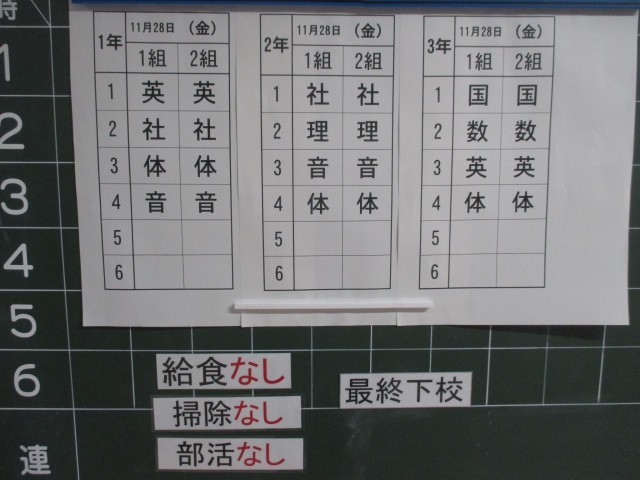 時
1
2
3
4
5
6
連
1年 11月28日 (金)
1組 2組
1 英 英
2 社 社
3 体 体
4 音 音
5
6
2年 11月28日 (金)
1組 2組
1 社 社
2 理 理
3 音 音
4 体 体
5
6
3年 11月28日 (金)
1組 2組
1 国 国
2 数 数
3 英 英
4 体 体
5
6
給食なし
掃除なし
部活なし
最終下校